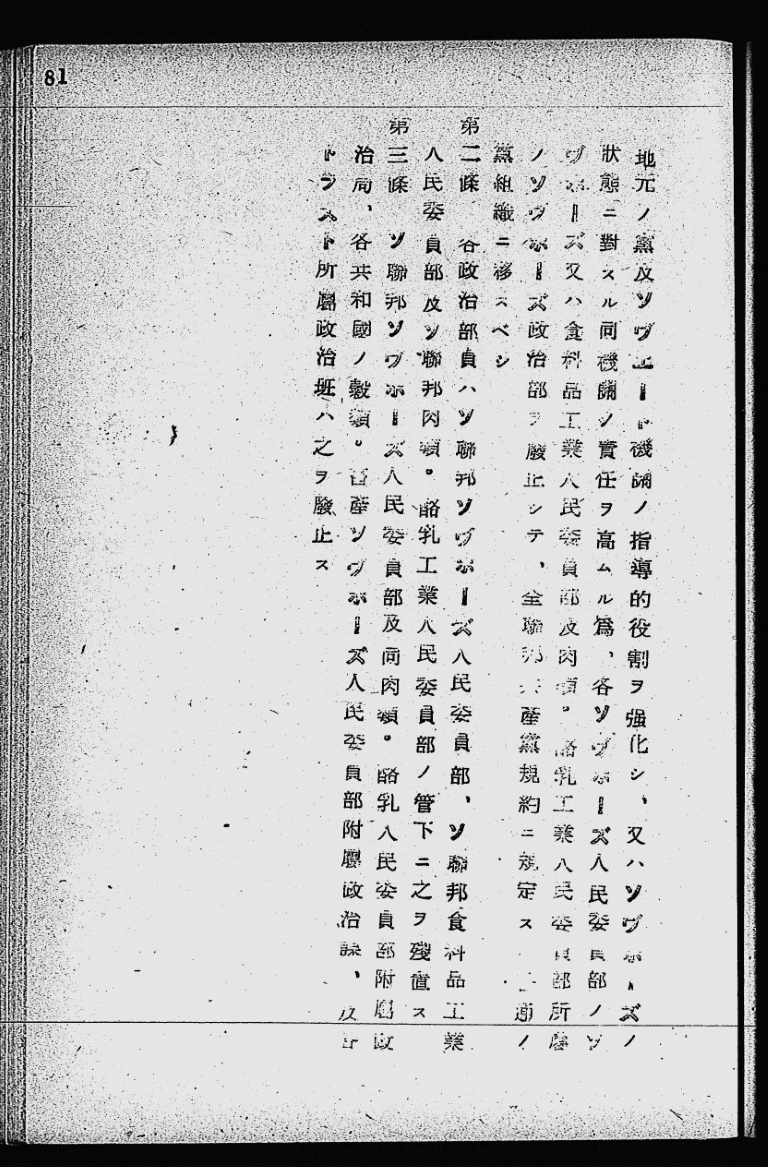 81
地元ノ黨及ソヴエート機關ノ指導的役割ヲ强化シ、又ハソヴホーズノ
狀態ニ對スル同機關ノ責任ヲ高ムル爲、各ソヴホーズ人民委員部ノソ
ヴホーズ又ハ食料品工業人民委員部及肉類。酪乳工業人民委員部所屬
ノソヴホーズ政治部ヲ廢止シテ、全聯邦共產黨規約ニ規定ス普通ノ
黨組織ニ移スベシ
第二條 各政治部員ハソ聯邦ソヴホーズ人民委員部、ソ聯邦食料品工業
人民委員部及ソ聯邦肉類。酪乳工業人民委員部ノ管下ニ之ヲ殘置ス
第三條 ソ聯邦ソヴホーズ人民委員部及同肉類。酪乳人民委員部附屬政
治局、各共和國ノ穀類。畜產ソヴホーズ人民委員部附屬政治課、及各
トラスト所屬政治班ハ之ヲ廢止ス